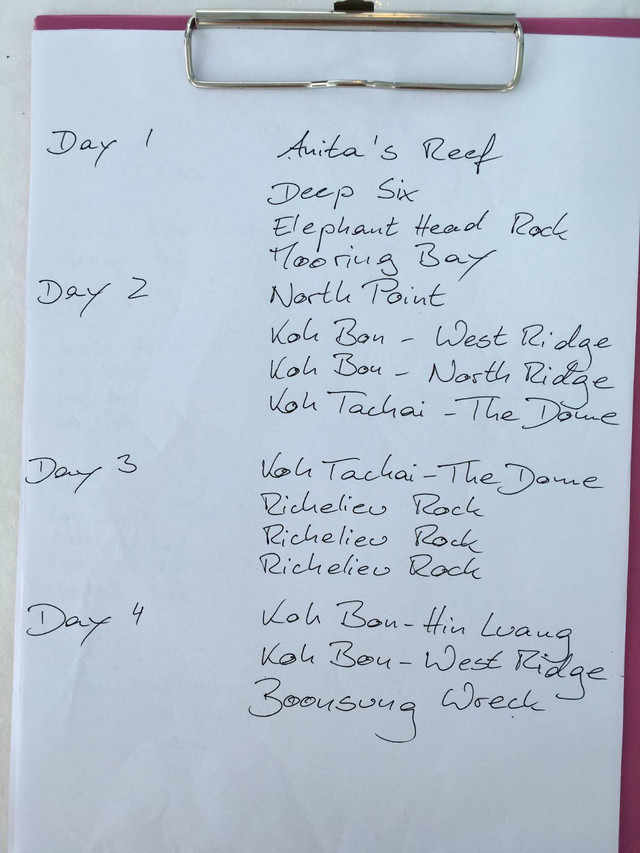 Day 1 Anita's Reef
Deep Six
Elephant Head Rock
Mooring Bay
Day 2 North Point
Koh Bon - West Ridge
Koh Bon - North Ridge
Koh Tachai - The Dome
Day 3 Koh Tachai - The Dome
Richelieu Rock
Richelieu Rock
Richelieu Rock
Day 4 Koh Bon - Hin Luang
Koh Bon - West Ridge
Boonsung Wreck